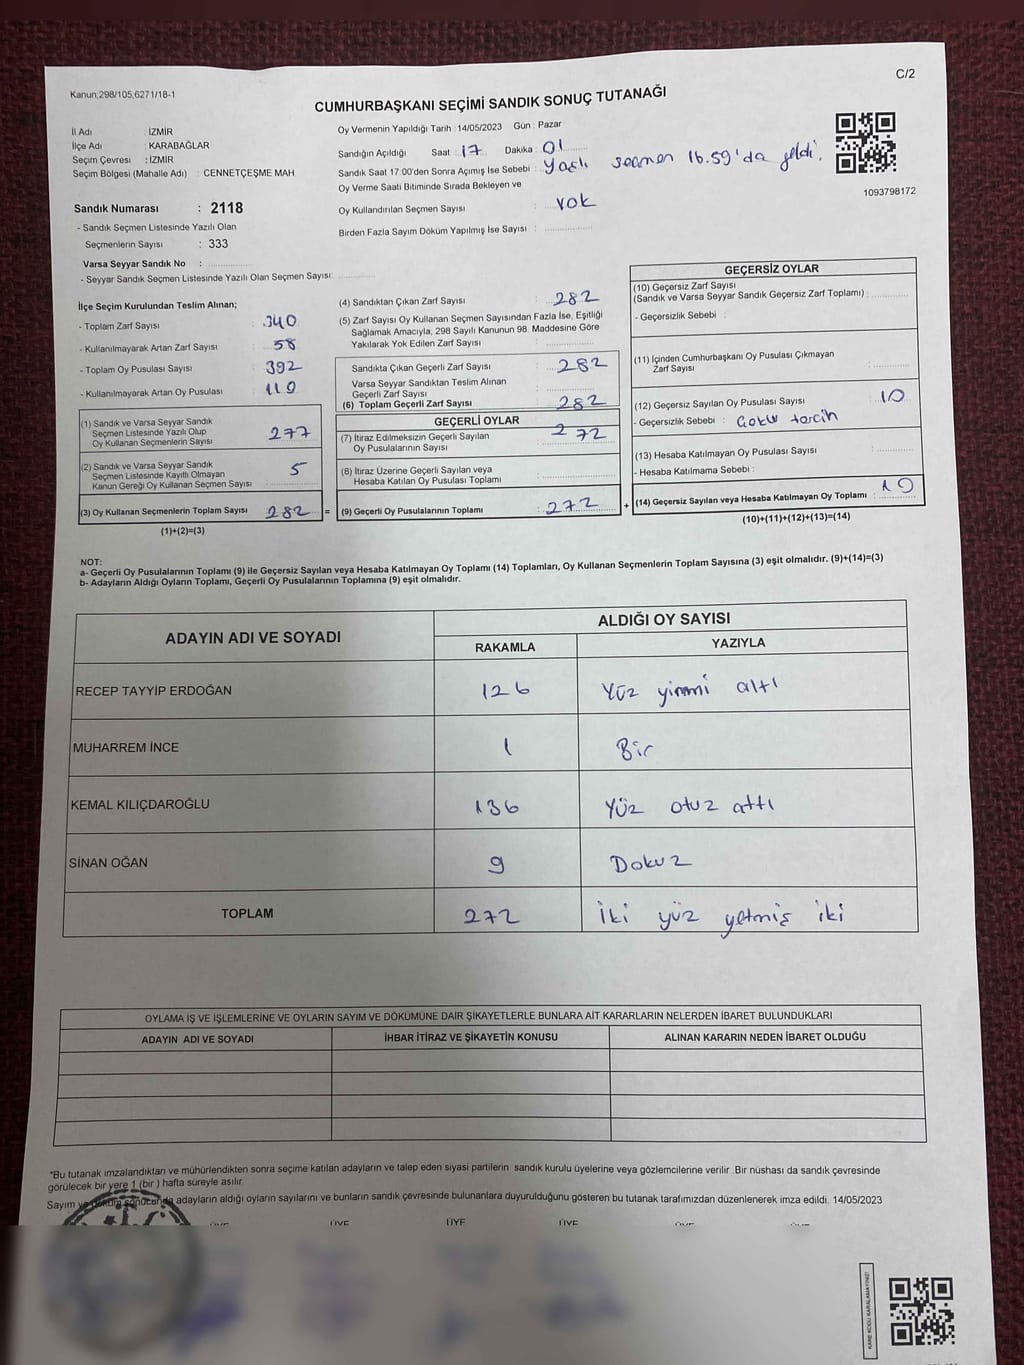 C/2
Kanun;298/105,6271/18-1
CUMHURBAŞKANI SEÇİMİ SANDIK SONUÇ TUTANAĞI
İl Adı : İZMİR
İlçe Adı : KARABAĞLAR
Seçim Çevresi : İZMİR
Seçim Bölgesi (Mahalle Adı) : CENNETÇEŞME MAH
Sandık Numarası : 2118
- Sandık Seçmen Listesinde Yazılı Olan
Seçmenlerin Sayısı : 333
Varsa Seyyar Sandık No :
- Seyyar Sandık Seçmen Listesinde Yazılı Olan Seçmen Sayısı:
Oy Vermenin Yapıldığı Tarih : 14/05/2023 Gün : Pazar
Sandığın Açıldığı Saat : 17 Dakika : 01
Sandık Saat 17:00'den Sonra Açımış İse Sebebi : Yaşlı seçmen 16.59'da geldi.
Oy Verme Saati Bitiminde Sırada Bekleyen ve
Oy Kullandırılan Seçmen Sayısı : Yok
Birden Fazla Sayım Döküm Yapılmış İse Sayısı :
1093798172
İlçe Seçim Kurulundan Teslim Alınan;
- Toplam Zarf Sayısı : 340
- Kullanılmayarak Artan Zarf Sayısı : 58
- Toplam Oy Pusulası Sayısı : 392
- Kullanılmayarak Artan Oy Pusulası : 110
(1) Sandık ve Varsa Seyyar Sandık
Seçmen Listesinde Yazılı Olup
Oy Kullanan Seçmenlerin Sayısı 277
(2) Sandık ve Varsa Seyyar Sandık
Seçmen Listesinde Kayıtlı Olmayan
Kanun Gereği Oy Kullanan Seçmen Sayısı 5
(3) Oy Kullanan Seçmenlerin Toplam Sayısı 282 =
(1)+(2)=(3)
(4) Sandıktan Çıkan Zarf Sayısı : 282
(5) Zarf Sayısı Oy Kullanan Seçmen Sayısından Fazla İse, Eşitliği
Sağlamak Amacıyla; 298 Sayılı Kanunun 98. Maddesine Göre
Yakılarak Yok Edilen Zarf Sayısı :
Sandıkta Çıkan Geçerli Zarf Sayısı : 282
Varsa Seyyar Sandıktan Teslim Alınan
Geçerli Zarf Sayısı :
(6) Toplam Geçerli Zarf Sayısı : 282
GEÇERLİ OYLAR
(7) İtiraz Edilmeksizin Geçerli Sayılan
Oy Pusulasının Sayısı : 272
(8) İtiraz Üzerine Geçerli Sayılan veya
Hesaba Katılan Oy Pusulası Toplamı :
(9) Geçerli Oy Pusulalarının Toplamı : 272 +
GEÇERSİZ OYLAR
(10) Geçersiz Zarf Sayısı
(Sandık ve Varsa Seyyar Sandık Geçersiz Zarf Toplamı) :
- Geçersizlik Sebebi :
(11) İçinden Cumhurbaşkanı Oy Pusulası Çıkmayan
Zarf Sayısı :
(12) Geçersiz Sayılan Oy Pusulası Sayısı : 10
- Geçersizlik Sebebi : Çoklu tercih
(13) Hesaba Katılmayan Oy Pusulası Sayısı :
- Hesaba Katılmama Sebebi :
(14) Geçersiz Sayılan veya Hesaba Katılmayan Oy Toplamı : 10
(10)+(11)+(12)+(13)=(14)
NOT:
a- Geçerli Oy Pusulalarının Toplamı (9) ile Geçersiz Sayılan veya Hesaba Katılmayan Oy Toplamı (14) Toplamları, Oy Kullanan Seçmenlerin Toplam Sayısına (3) eşit olmalıdır. (9)+(14)=(3)
b- Adayların Aldığı Oyların Toplamı, Geçerli Oy Pusulalarının Toplamına (9) eşit olmalıdır.
ADAYIN ADI VE SOYADI ALDIĞI OY SAYISI
RAKAMLA YAZIYLA
RECEP TAYYİP ERDOĞAN 126 Yüz yirmi altı
MUHARREM İNCE 1 Bir
KEMAL KILIÇDAROĞLU 136 Yüz otuz altı
SİNAN OĞAN 9 Dokuz
TOPLAM 272 İki yüz yetmiş iki
OYLAMA İŞ VE İŞLEMLERİNE VE OYLARIN SAYIM VE DÖKÜMÜNE DAİR ŞİKAYETLERLE BUNLARA AİT KARARLARIN NELERDEN İBARET BULUNDUKLARI
ADAYIN ADI VE SOYADI İHBAR İTİRAZ VE ŞİKAYETİN KONUSU ALINAN KARARIN NEDEN İBARET OLDUĞU
*Bu tutanak imzalandıktan ve mühürlendikten sonra seçime katılan adayların ve talep eden siyasi partilerin sandık kurulu üyelerine veya gözlemcilerine verilir .Bir nüshası da sandık çevresinde
görülecek bir yere 1 (bir ) hafta süreyle asılır.
Sayım ve döküm sonucunda adayların aldığı oyların sayılarını ve bunların sandık çevresinde bulunanlara duyurulduğunu gösteren bu tutanak tarafımızdan düzenlenerek imza edildi. 14/05/2023
ÜYE ÜYE ÜYE ÜYE ÜYE ÜYE
KARE KODU KARALAMAYINIZ!